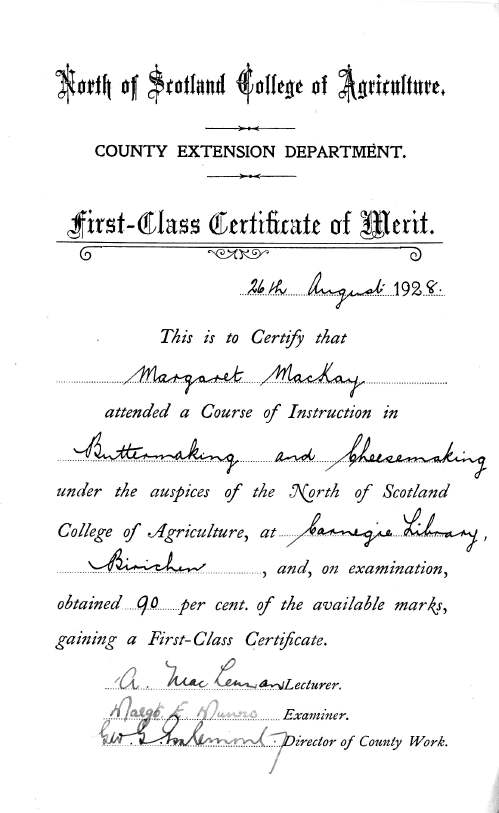 North of Scotland College of Agriculture.
COUNTY EXTENSION DEPARTMENT.
First-Class Certificate of Merit.
26th August 1928.
This is to Certify that
Margaret MacKay
attended a Course of Instruction in
Buttermaking and Cheesemaking
under the auspices of the North of Scotland
College of Agriculture, at Carnegie Library,
Birichen, and, on examination,
obtained 90 per cent. of the available marks,
gaining a First-Class Certificate.
A. MacLennan Lecturer.
Margt E Munro Examiner.
Geo. G. Director of County Work.